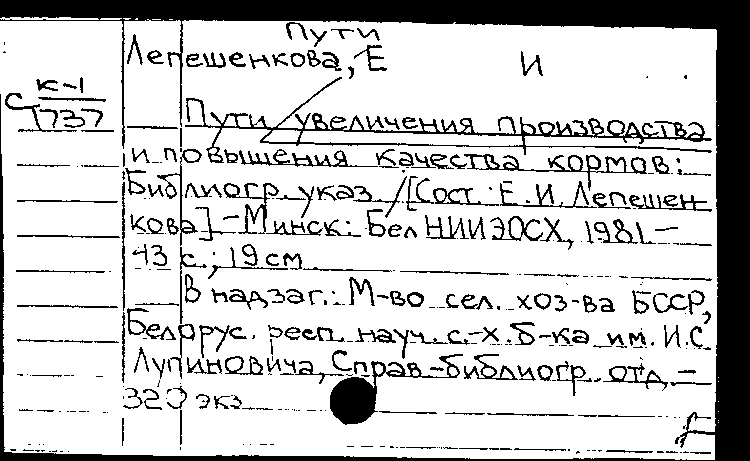 Пути
Лепешенкова, Е И
К-1
С 1737
Пути увеличения производства
и повышения качества кормов:
Библиогр. указ. /[Сост.: Е.И. Лепешен-
кова] -Минск: Бел НИИЭОСХ, 1981.-
43 с.; 19 см
В надзаг.: М-во сел. хоз-ва БССР,
Белорус. респ. науч. с.-х. б-ка им. И.С
Лупиновича, Справ-библиогр. отд. -
320 экз